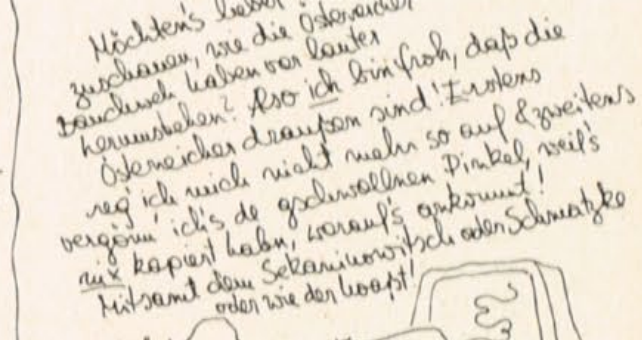 Möchten's lieber
zuschauen, wie die Österreicher
Bauchweh haben vor lauter
herumstehen? Also ich bin froh, daß die
Österreicher draußen sind! Erstens
reg' ich mich nicht mehr so auf & zweitens
vergönn' ich's de gschwollnen Pinkel, weil's
nix kapiert habn, worauf's ankommt!
Mitsamt dem Sekaninowitsch oder Schmatzke
oder wie der hoaßt!